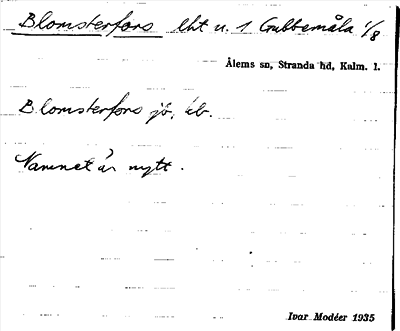 Blomsterfors lht u. 1 Gubbemåla 1/8
Ålems sn, Stranda hd, Kalm. l.
Blomsterfors jb, kb.
Namnet är nytt.
Ivar Modéer 1935